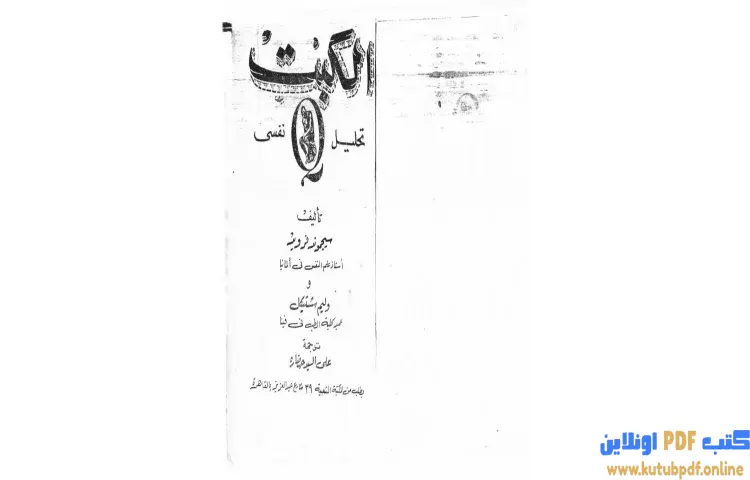 الكبت
تحليل نفسى
تأليف
سيجموند فرويد
أستاذ علم النفس فى ألمانيا
و
وليم شتيكل
عميد كلية الطب فى فينا
ترجمة
على السيد حضارة
يطلب من المكتبة الشعبية ٣٩ شارع عبد العزيز بالقاهرة
كتب PDF اونلاين
www.kutubpdf.online